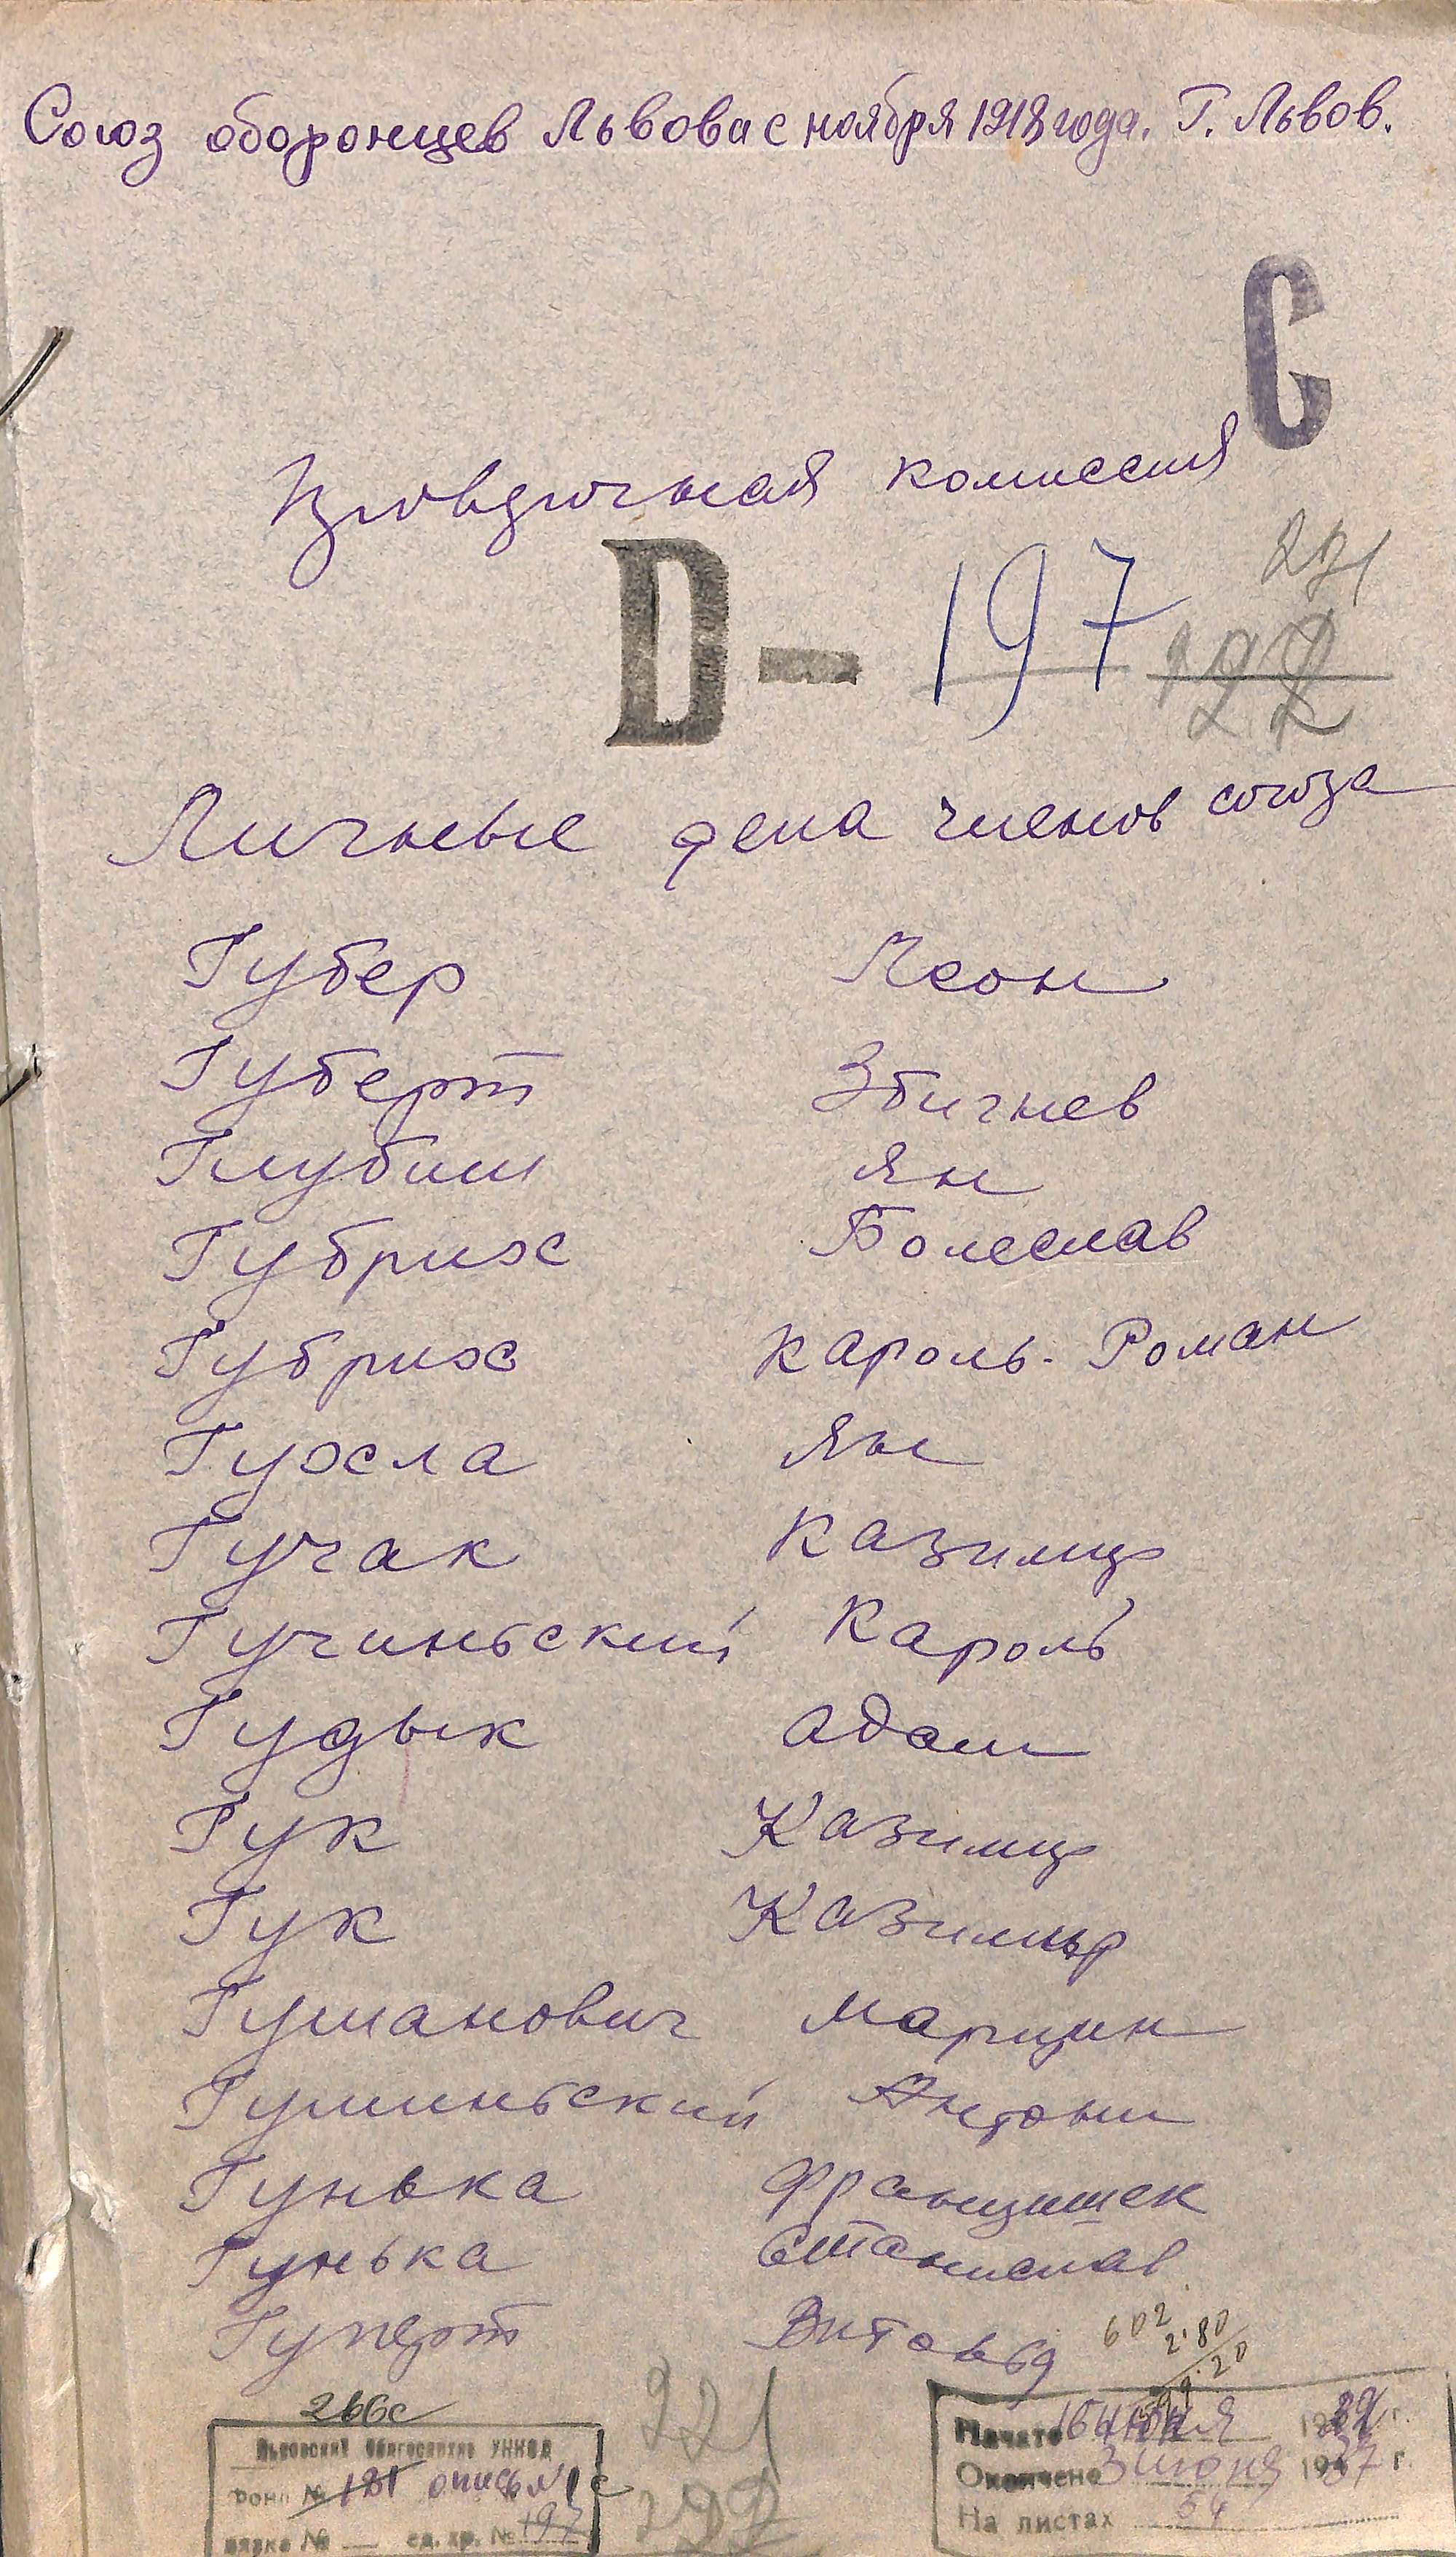 Союз оборонцев Львова с ноября 1918 года. Г. Львов.
С
комиссия
D - 197
221
Личные дела членов союза
Губер Леон
Губерт Збигнев
Глубиш Ян
Губрих Болеслав
Губрих Кароль-Роман
Гухла Ян
Гучак Казимир
Гучиньский Кароль
Гудык Адам
Гук Казимир
Гук Казимир
Гуманович Марцин
Гуминьский Антони
Гунька Францишек
Гунька Станислав
Гуперт Витольд
602
2.80
20
266с
221
Львовский Облгосархив УНКВД
Фонд № 181 опись № 1с
вязка № — ед. хр. № 197
Начато 16 июня
Окончено 3 июня 1937 г.
На листах 54